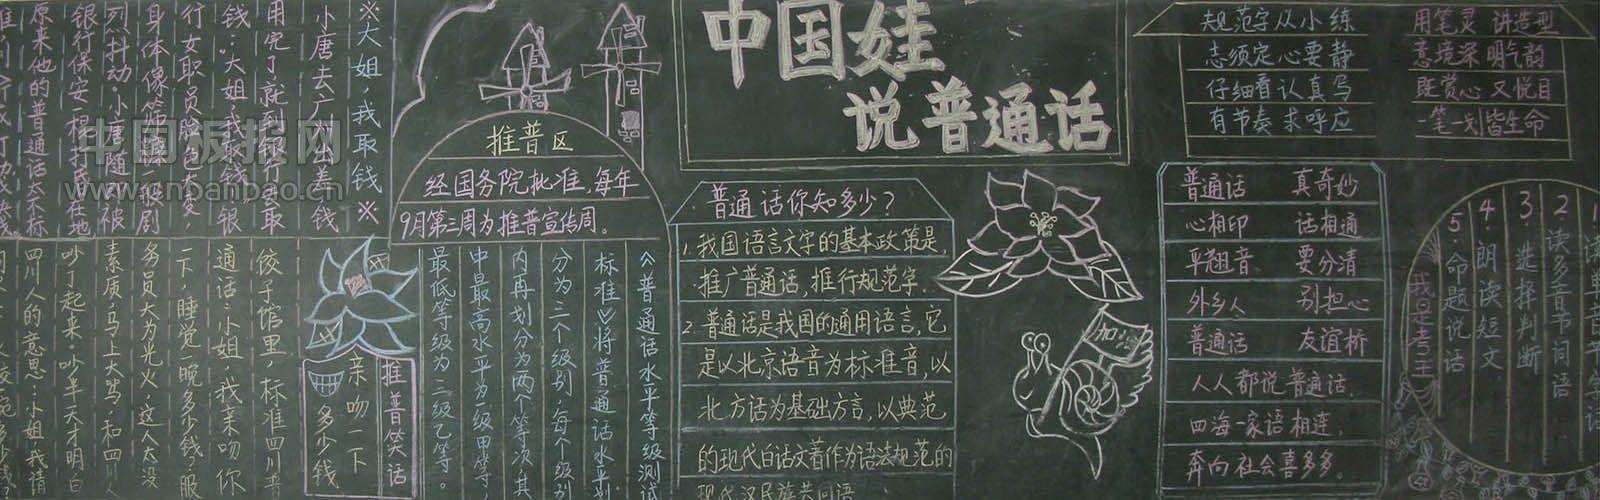 中国娃
说普通话
※大姐，我取钱※
小唐去广州出差，钱
用完了就到银行去取
钱：大姐我取钱。银
行女职员脸色大变，
身体像筛糠一般剧
烈抖动。小唐随即被
银行保安一棍打昏在地
原来他的普通话太不标
饺子馆里，标准四川普
通话：小姐，我亲吻你
一下，睡觉一晚多少钱？服
务员大为光火，这人太没
素质，马上大骂，和四川人
吵了起来，吵半天才明白
四川人的意思：小姐我请
推普笑话
亲吻一下
多少钱
推普区
经国务院批准，每年
9月第三周为推普宣传周。
《普通话水平等级测试
标准》将普通话水平划
分为三个级别，每个级别
内再划分为两个等次，其
中最高水平为一级甲等，
最低等级为三级乙等。
普通话你知多少？
1.我国语言文字的基本政策是，
推广普通话，推行规范字.
2.普通话是我国的通用语言，它
是以北京语音为标准音，以
北方话为基础方言，以典范
的现代白话文著作为语法规范的
现代汉民族共同语
加油
规范字从小练 用笔灵 讲造型
志须定心要静 意境深 明气韵
仔细看认真写 既赏心 又悦目
有节奏求呼应 一笔一划皆生命
普通话 真奇妙
心相印 话相通
平翘音 要分清
外乡人 别担心
普通话 友谊桥
人人都说普通话，
四海一家语相连，
奔向社会喜多多。
1.读单音节字词
2.读多音节词语
3.选择判断
4.朗读短文
5.命题说话
我是考王
www.cnbanbao.cn
中国板报网